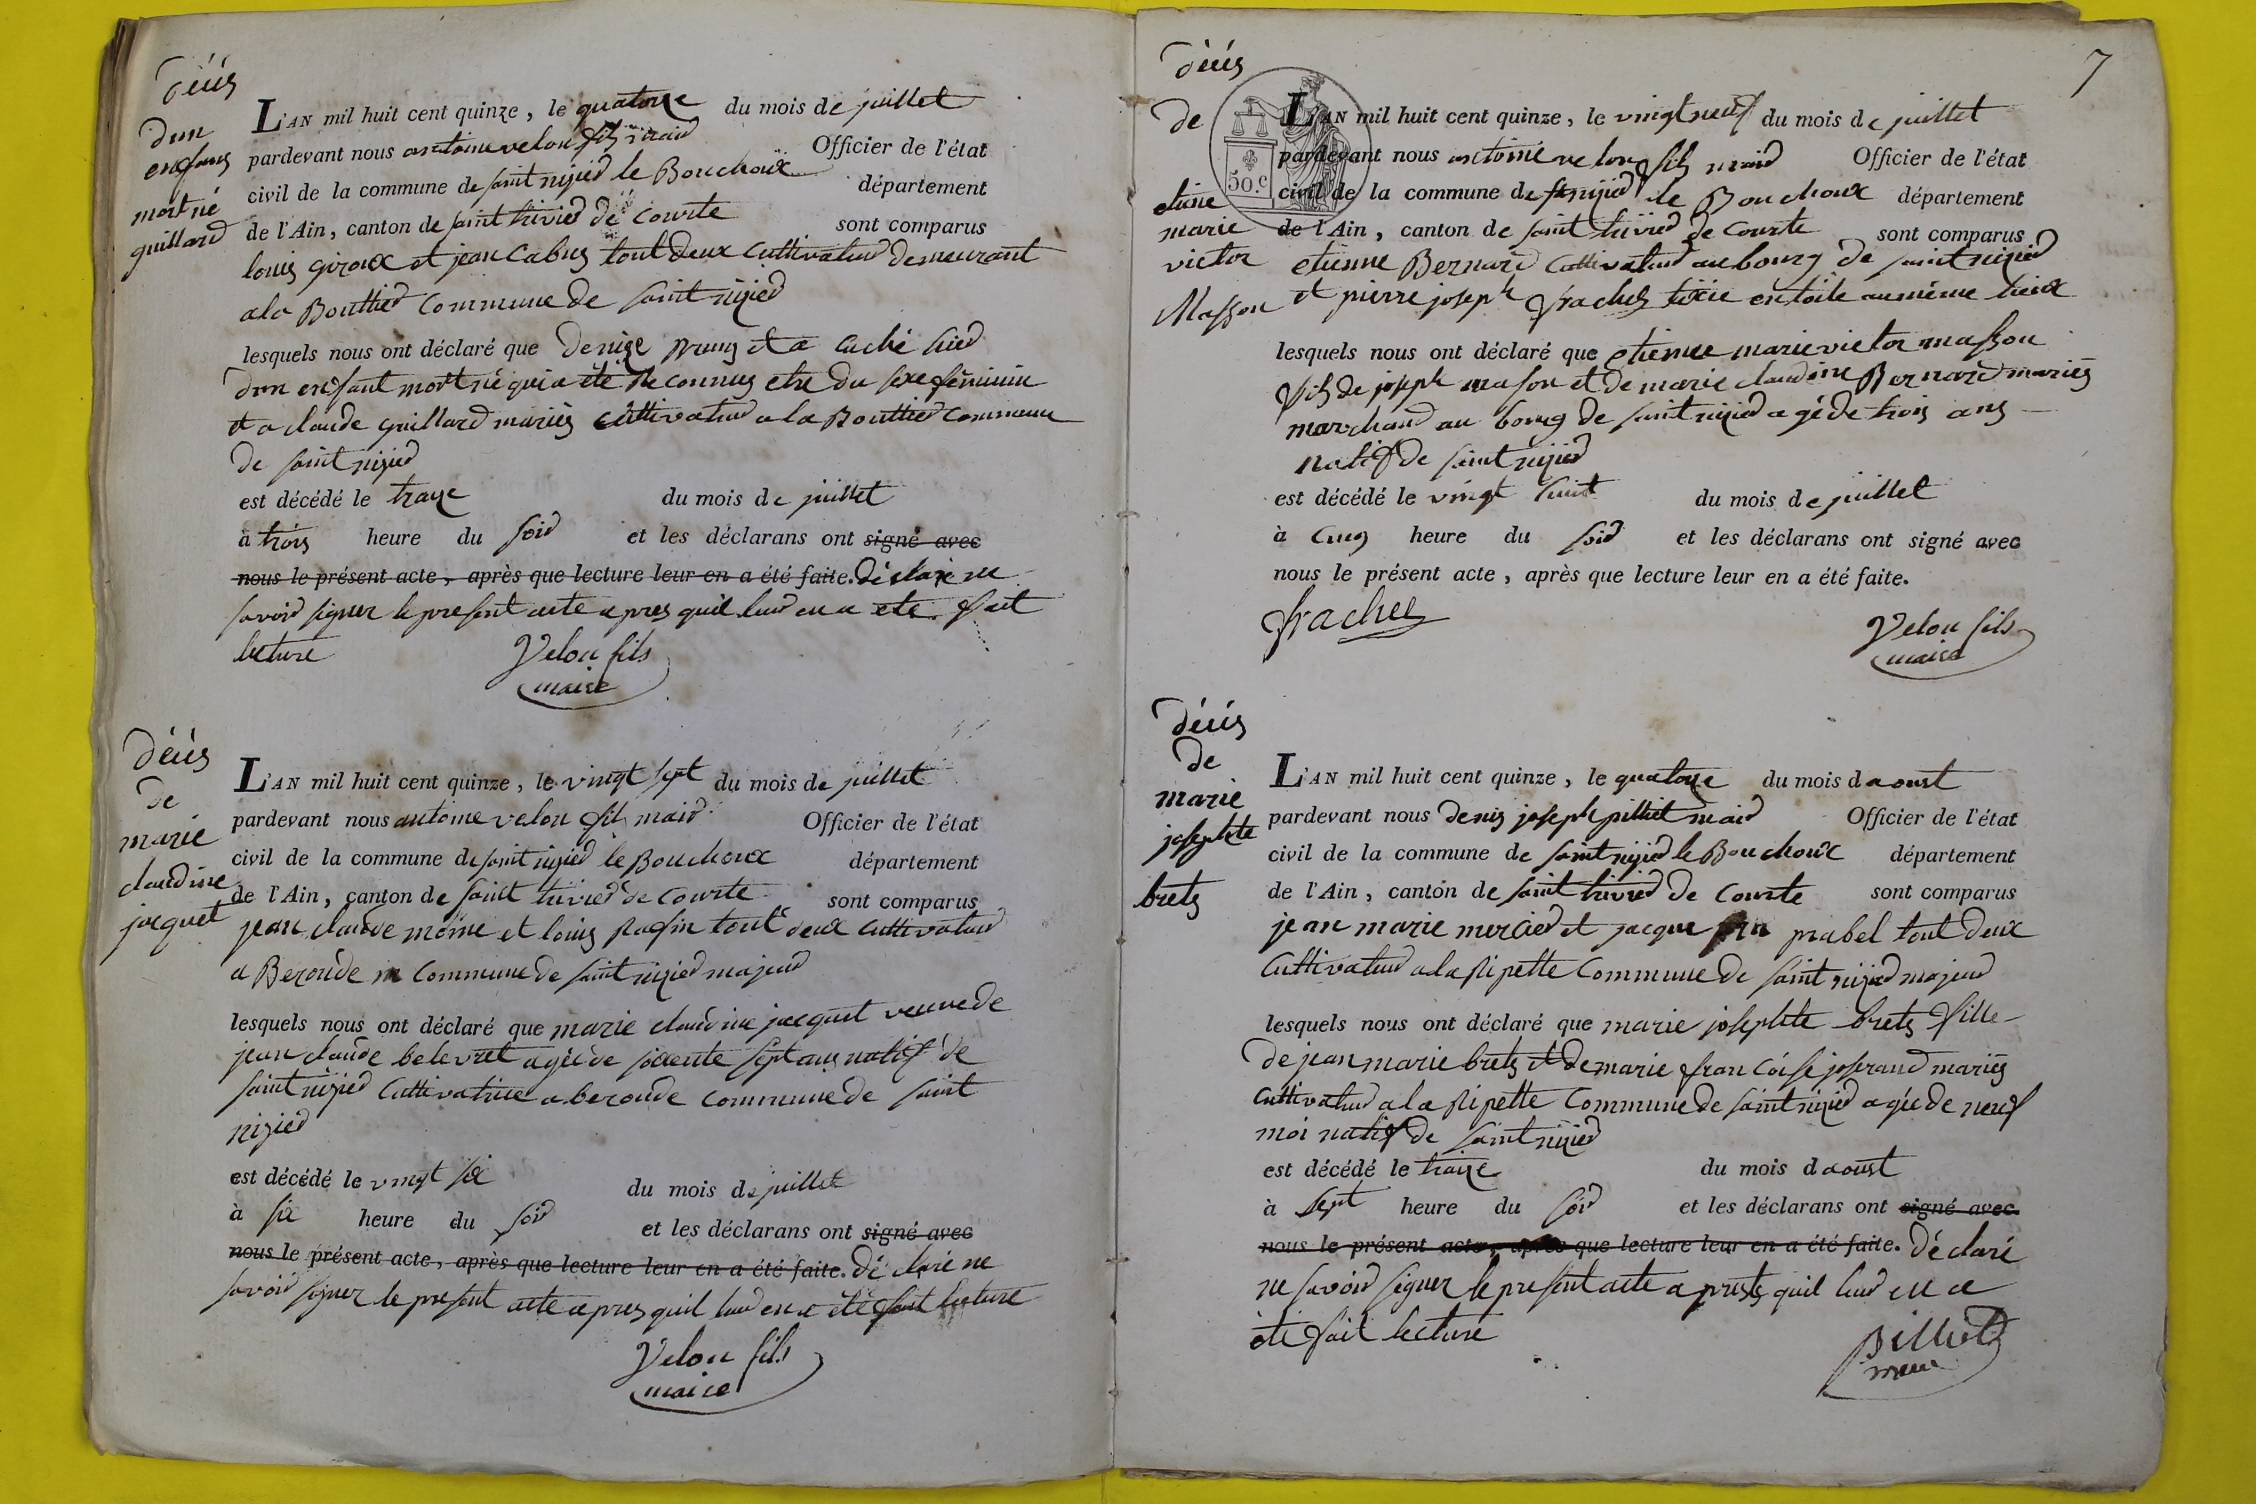 décés
dun
enfans
mort né
guillard
L'AN mil huit cent quinze, le quatorze du mois de juillet
pardevant nous antoine velon fils maird Officier de l'état
civil de la commune de saint nizied le Bouchoux département
de l'Ain, canton de saint trivied de Courte sont comparus
louis giroux et jean Cabus tout deux Cultivateud demeurant
a la Bouttied Commune de saint nizied
lesquels nous ont déclaré que denize et a
dun enfant mort né qui a été Reconnus etre du sexe féminin
et a claude guillard mariés Cultivateud a la Bouttied Commune
de saint nizied
est décédé le traize du mois de juillet
à trois heure du soid et les déclarans ont signé avec
nous le présent acte, après que lecture leur en a été faite. déclare ne
savoid signer le present acte apres quil leud en a ete fait
lecture
Velon fils
maire
décés
de
marie
claudine
jacquet
L'AN mil huit cent quinze, le vingt sept du mois de juillet
pardevant nous antoine velon fils maird Officier de l'état
civil de la commune de saint nizied le Bouchoux département
de l'Ain, canton de saint trivied de Courte sont comparus
jean claude mome et louis Rafin tout deux Cultivateud
a Beronde Commune de saint nizied majeud
lesquels nous ont déclaré que marie claudine jacquet veuve de
jean claude belevret agée de soixente sept ans natif de
saint nizied Cultivatrice a beronde Commune de saint
nizied
est décédé le vingt six du mois de juillet
à six heure du soid et les déclarans ont signé avec
nous le présent acte, après que lecture leur en a été faite. déclaré ne
savoid signer le present acte apres quil leud en a été fait lecture
Velon fils
maire
7
décés
de
etiene
marie
victor
Masson
50.c
L'AN mil huit cent quinze, le vingt neuf du mois de juillet
pardevant nous antoine velon fils maird Officier de l'état
civil de la commune de st nizied le Bouchoux département
de l'Ain, canton de saint trivied de Courte sont comparus
etienne Bernard Cultivateud au bourg de saint nizied
et pierre joseph frachet tixie en toile au même lieux
lesquels nous ont déclaré que etienne marie victor masson
fils de joseph mason et de marie claudine Bernard mariés
marchand au bourg de saint nizied agé de trois ans
natif de saint nizied
est décédé le vingt huit du mois de juillet
à Cinq heure du soid et les déclarans ont signé avec
nous le présent acte, après que lecture leur en a été faite.
frachet
Velon fils
maire
décés
de
marie
josephte
brets
L'AN mil huit cent quinze, le quatorze du mois daoust
pardevant nous denis joseph pilliet maird Officier de l'état
civil de la commune de saint nizied le Bouchoux département
de l'Ain, canton de saint trivied de Courte sont comparus
jean marie mercied et jacque prabel tout deux
Cultivateud a la Ripette Commune de saint nizied majeud
lesquels nous ont déclaré que marie josephte brets fille
de jean marie brets et de marie francoise joserand mariés
Cultivateud a la Ripette Commune de saint nizied agée de neuf
moi natif de saint nizied
est décédé le traize du mois daoust
à sept heure du soid et les déclarans ont signé avec
nous le présent acte, après que lecture leur en a été faite. déclaré
ne savoid signer le present acte a prests quil leud en a
été fait lecture
Billiet
maire